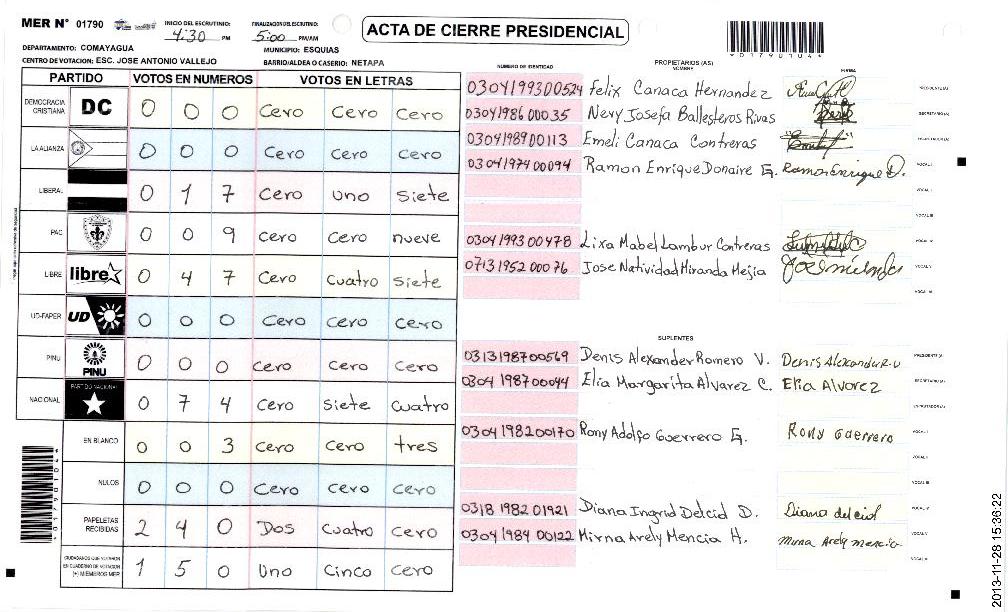 MER N° 01790
INICIO DEL ESCRUTINIO: 4:30 PM
FINALIZACION DEL ESCRUTINIO: 5:00 PM/AM
ACTA DE CIERRE PRESIDENCIAL
*01790104*
DEPARTAMENTO: COMAYAGUA
MUNICIPIO: ESQUIAS
CENTRO DE VOTACION: ESC. JOSE ANTONIO VALLEJO
BARRIO/ALDEA O CASERIO: NETAPA
PARTIDO VOTOS EN NUMEROS VOTOS EN LETRAS
DEMOCRACIA CRISTIANA DC 0 0 0 Cero Cero Cero
LA ALIANZA 0 0 0 Cero Cero Cero
LIBERAL 0 1 7 Cero uno siete
PAC 0 0 9 Cero Cero nueve
LIBRE libre 0 4 7 Cero cuatro siete
UD-FAPER UD 0 0 0 Cero Cero Cero
PINU PINU 0 0 0 Cero Cero Cero
NACIONAL PARTIDO NACIONAL 0 7 4 Cero siete cuatro
EN BLANCO 0 0 3 Cero Cero tres
NULOS 0 0 0 Cero Cero Cero
PAPELETAS RECIBIDAS 2 4 0 Dos cuatro cero
CIUDADANOS QUE VOTARON EN CUADERNO DE VOTACION (+) MIEMBROS MER 1 5 0 Uno Cinco cero
NUMERO DE IDENTIDAD
PROPIETARIOS (AS)
NOMBRE
FIRMA
0304199300524 Felix Canaca Hernandez PRESIDENTE(A)
0304198600035 Nery Josefa Ballesteros Rivas SECRETARIO(A)
0304198900113 Emeli Canaca Contreras ESCRUTADOR(A)
0304197400094 Ramon Enrique Donaire G. Ramon Enrique D. VOCAL I
VOCAL II
VOCAL III
0304199300478 Lixa Mabel Lambur Contreras VOCAL IV
0713195200076 Jose Natividad Miranda Mejia VOCAL V
VOCAL VI
SUPLENTES
0313198700569 Denis Alexander Romero V. Denis Alexander V PRESIDENTE(A)
0304198700044 Elia Margarita Alvarez C. Elia Alvarez SECRETARIO(A)
ESCRUTADOR(A)
0304198200170 Rony Adolfo Guerrero G. Rony Guerrero VOCAL I
VOCAL II
VOCAL III
0318198201921 Diana Ingrid Delcid D. Diana del cid VOCAL IV
0304198400122 Mirna Arely Mencia H. Mirna Arely mencia VOCAL V
VOCAL VI
*01790104*
2013-11-28 15:36:22